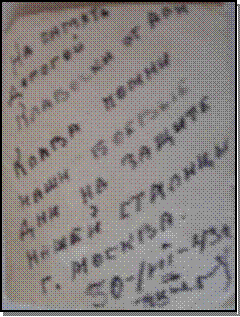 На память
дорогой
Клавочки от Ани
Клава помни
наши боевые
дни на защите
нашей сталицы
г. Москва.
30-/VII-43г